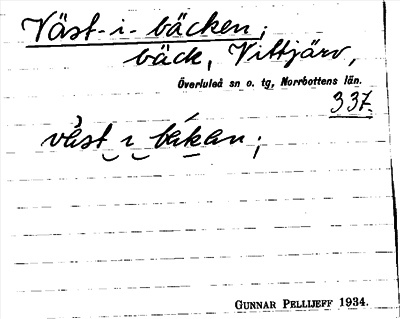 Väst-i-bäcken;
bäck, Vittjärv,
Överluleå sn o. tg, Norrbottens län.
337.
våst ı bäkan;
GUNNAR PELLIJEFF 1934.